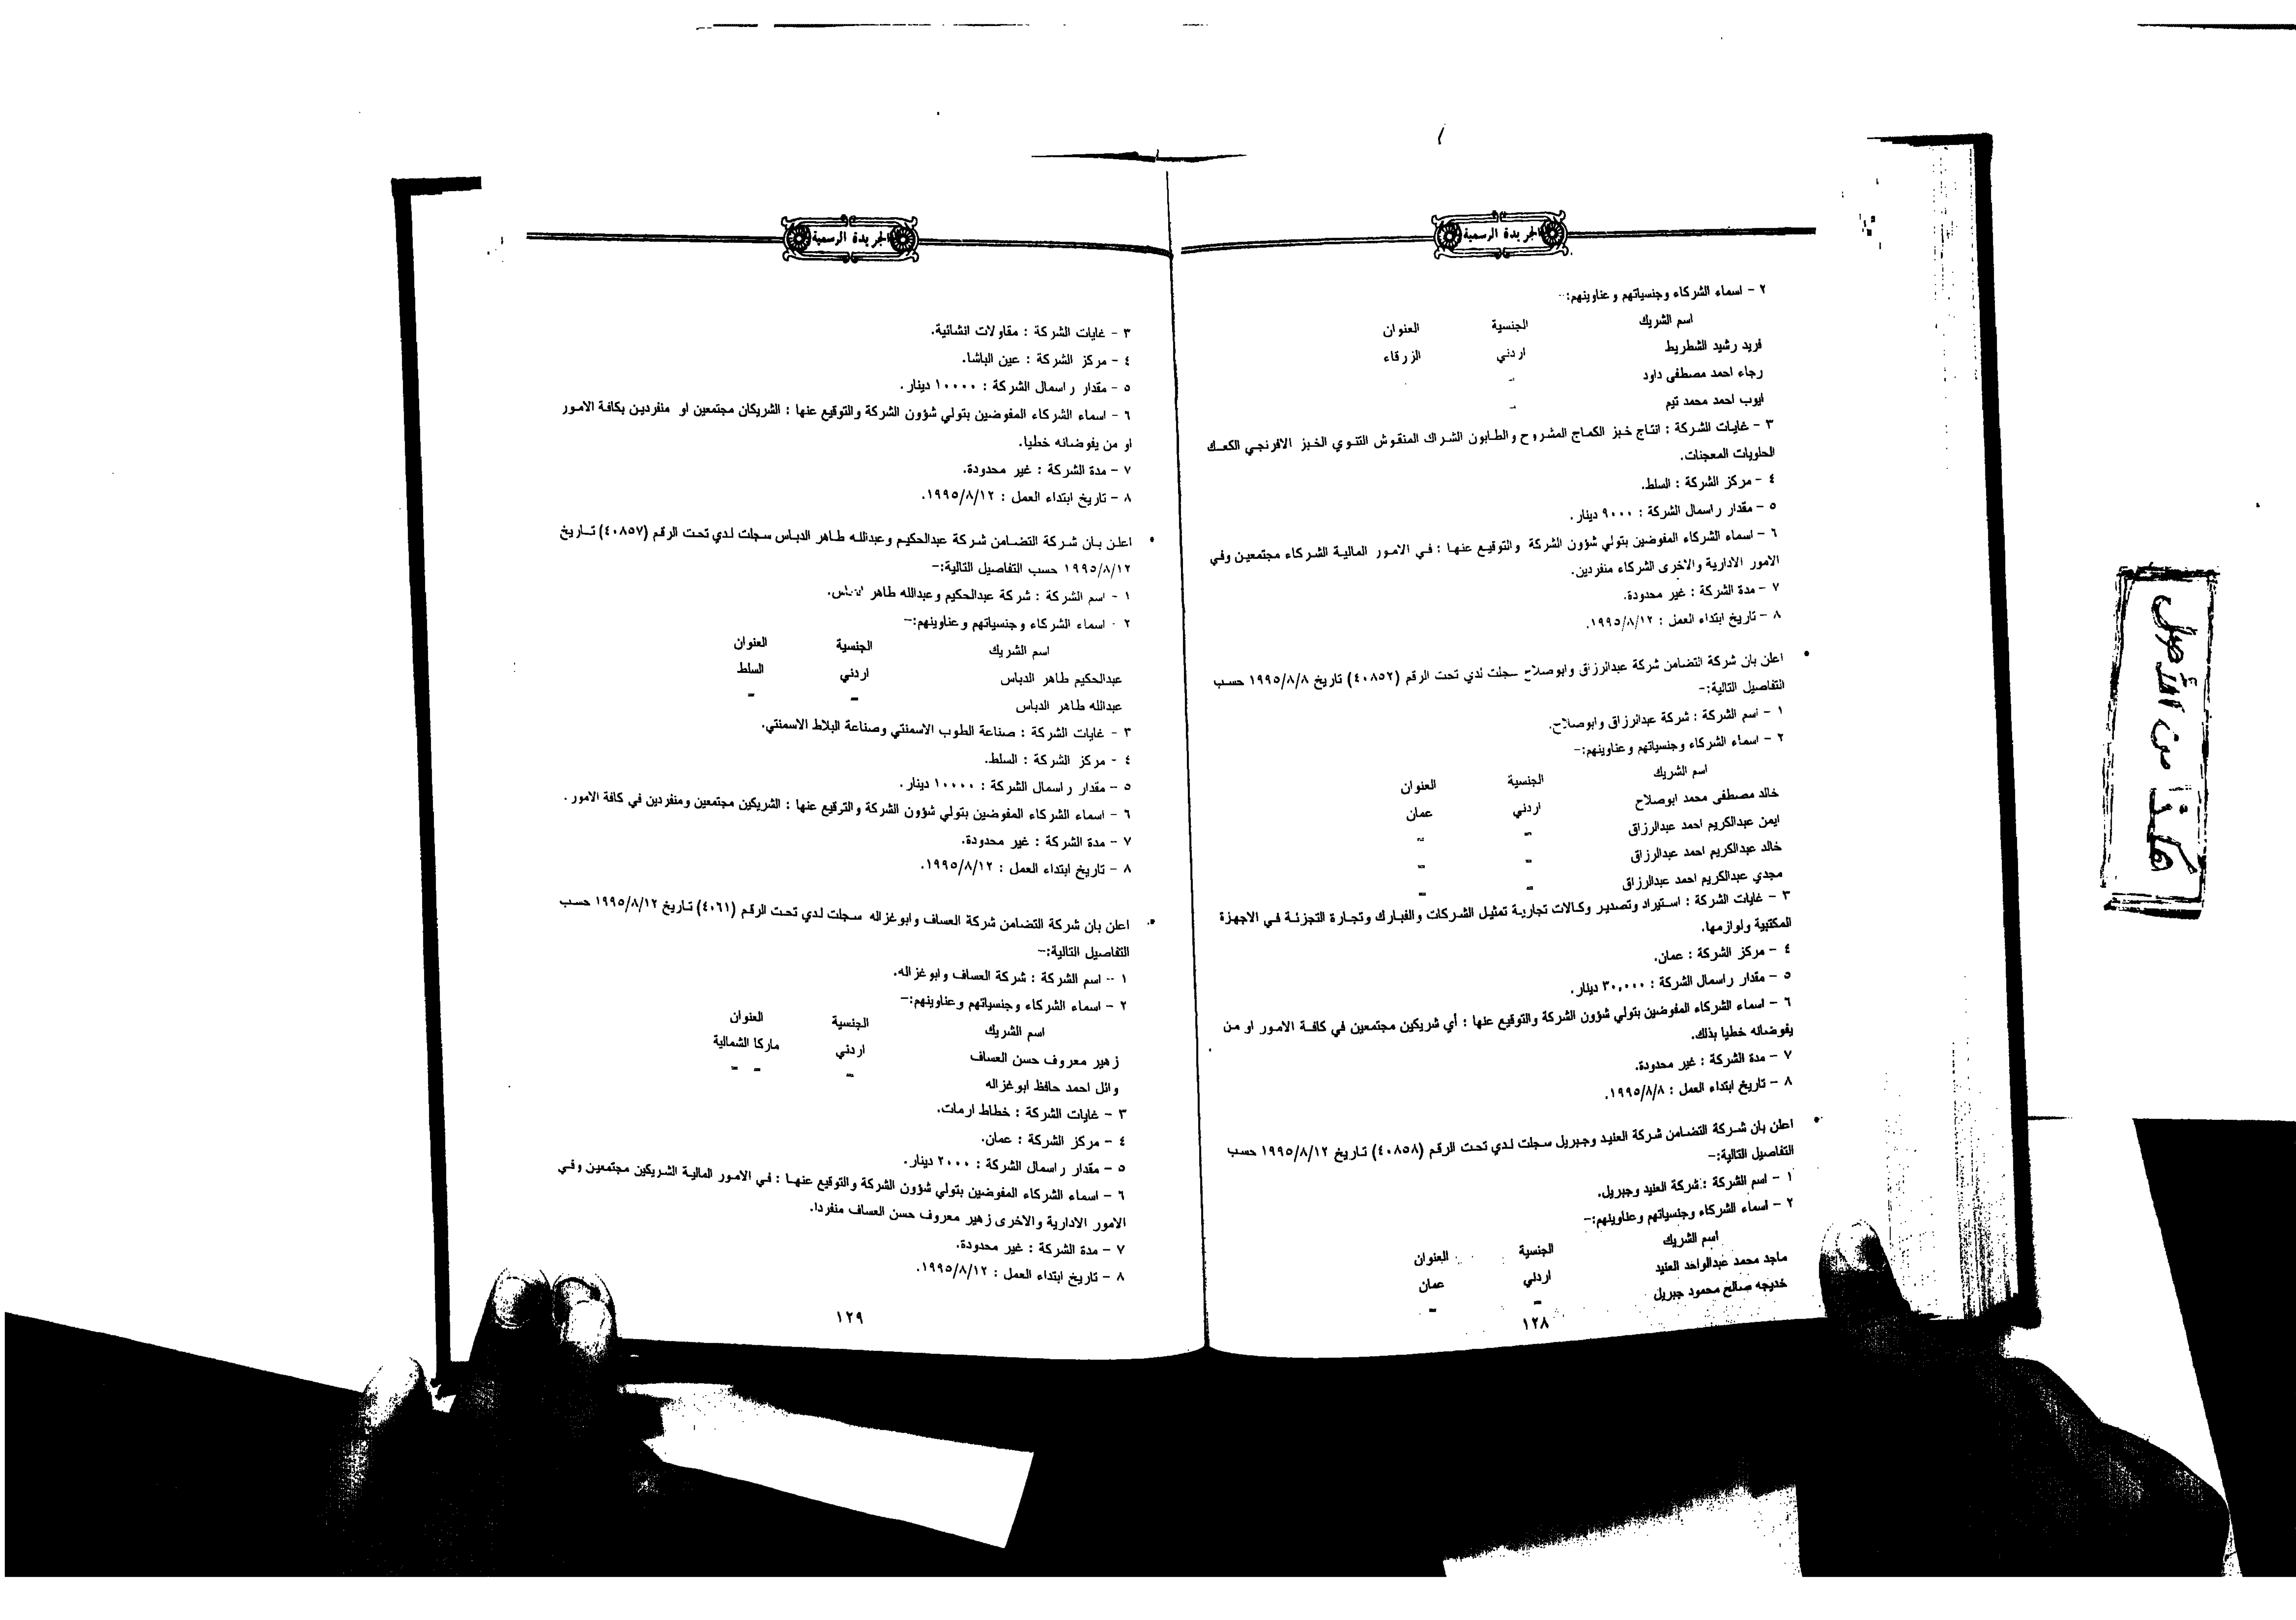 الجريدة الرسمية
٢ - اسماء الشركاء وجنسياتهم وعناوينهم:-
اسم الشريك الجنسية العنوان
فريد رشيد الشطريط اردني الزرقاء
رجاء احمد مصطفى داود -
ايوب احمد محمد تيم -
٣ - غايات الشركة : انتاج خبز الكماج المشروح والطابون الشراك المنقوش التنوي الخبز الافرنجي الكعك
الحلويات المعجنات.
٤ - مركز الشركة : السلط.
٥ - مقدار راسمال الشركة : ٩٠٠٠ دينار.
٦ - اسماء الشركاء المفوضين بتولي شؤون الشركة والتوقيع عنها : في الامور المالية الشركاء مجتمعين وفي
الامور الادارية والاخرى الشركاء منفردين.
٧ - مدة الشركة : غير محدودة.
٨ - تاريخ ابتداء العمل : ١٩٩٥/٨/١٢.
• اعلن بان شركة التضامن شركة عبدالرزاق وابوصلاح سجلت لدي تحت الرقم (٤٠٨٥٢) تاريخ ١٩٩٥/٨/٨ حسب
التفاصيل التالية:-
١ - اسم الشركة : شركة عبدالرزاق وابوصلاح.
٢ - اسماء الشركاء وجنسياتهم وعناوينهم:-
اسم الشريك الجنسية العنوان
خالد مصطفى محمد ابوصلاح اردني عمان
ايمن عبدالكريم احمد عبدالرزاق = =
خالد عبدالكريم احمد عبدالرزاق = =
مجدي عبدالكريم احمد عبدالرزاق = =
٣ - غايات الشركة : استيراد وتصدير وكالات تجارية تمثيل الشركات والفبارك وتجارة التجزئة في الاجهزة
المكتبية ولوازمها.
٤ - مركز الشركة : عمان.
٥ - مقدار راسمال الشركة : ٣٠,٠٠٠ دينار.
٦ - اسماء الشركاء المفوضين بتولي شؤون الشركة والتوقيع عنها : أي شريكين مجتمعين في كافة الامور او من
يفوضانه خطيا بذلك.
٧ - مدة الشركة : غير محدودة.
٨ - تاريخ ابتداء العمل : ١٩٩٥/٨/٨.
• اعلن بان شركة التضامن شركة العنيد وجبريل سجلت لدي تحت الرقم (٤٠٨٥٨) تاريخ ١٩٩٥/٨/١٢ حسب
التفاصيل التالية:-
١ - اسم الشركة : شركة العنيد وجبريل.
٢ - اسماء الشركاء وجنسياتهم وعناوينهم:-
اسم الشريك الجنسية العنوان
ماجد محمد عبدالواحد العنيد اردني عمان
خديجه صالح محمود جبريل = =
١٢٨
الجريدة الرسمية
٣ - غايات الشركة : مقاولات انشائية.
٤ - مركز الشركة : عين الباشا.
٥ - مقدار راسمال الشركة : ١٠٠٠٠ دينار.
٦ - اسماء الشركاء المفوضين بتولي شؤون الشركة والتوقيع عنها : الشريكان مجتمعين او منفردين بكافة الامور
او من يفوضانه خطيا.
٧ - مدة الشركة : غير محدودة.
٨ - تاريخ ابتداء العمل : ١٩٩٥/٨/١٢.
• اعلن بان شركة التضامن شركة عبدالحكيم وعبدالله طاهر الدباس سجلت لدي تحت الرقم (٤٠٨٥٧) تاريخ
١٩٩٥/٨/١٢ حسب التفاصيل التالية:-
١ - اسم الشركة : شركة عبدالحكيم وعبدالله طاهر الدباس.
٢ - اسماء الشركاء وجنسياتهم وعناوينهم:-
اسم الشريك الجنسية العنوان
عبدالحكيم طاهر الدباس اردني السلط
عبدالله طاهر الدباس = =
٣ - غايات الشركة : صناعة الطوب الاسمنتي وصناعة البلاط الاسمنتي.
٤ - مركز الشركة : السلط.
٥ - مقدار راسمال الشركة : ١٠٠٠٠ دينار.
٦ - اسماء الشركاء المفوضين بتولي شؤون الشركة والتوقيع عنها : الشريكين مجتمعين ومنفردين في كافة الامور.
٧ - مدة الشركة : غير محدودة.
٨ - تاريخ ابتداء العمل : ١٩٩٥/٨/١٢.
• اعلن بان شركة التضامن شركة العساف وابوغزاله سجلت لدي تحت الرقم (٤٠٦١) تاريخ ١٩٩٥/٨/١٢ حسب
التفاصيل التالية:-
١ - اسم الشركة : شركة العساف وابوغزاله.
٢ - اسماء الشركاء وجنسياتهم وعناوينهم:-
اسم الشريك الجنسية العنوان
زهير معروف حسن العساف اردني ماركا الشمالية
وائل احمد حافظ ابوغزاله = = =
٣ - غايات الشركة : خطاط ارمات.
٤ - مركز الشركة : عمان.
٥ - مقدار راسمال الشركة : ٢٠٠٠ دينار.
٦ - اسماء الشركاء المفوضين بتولي شؤون الشركة والتوقيع عنها : في الامور المالية الشريكين مجتمعين وفي
الامور الادارية والاخرى زهير معروف حسن العساف منفردا.
٧ - مدة الشركة : غير محدودة.
٨ - تاريخ ابتداء العمل : ١٩٩٥/٨/١٢.
١٢٩
هكذا من الأصل